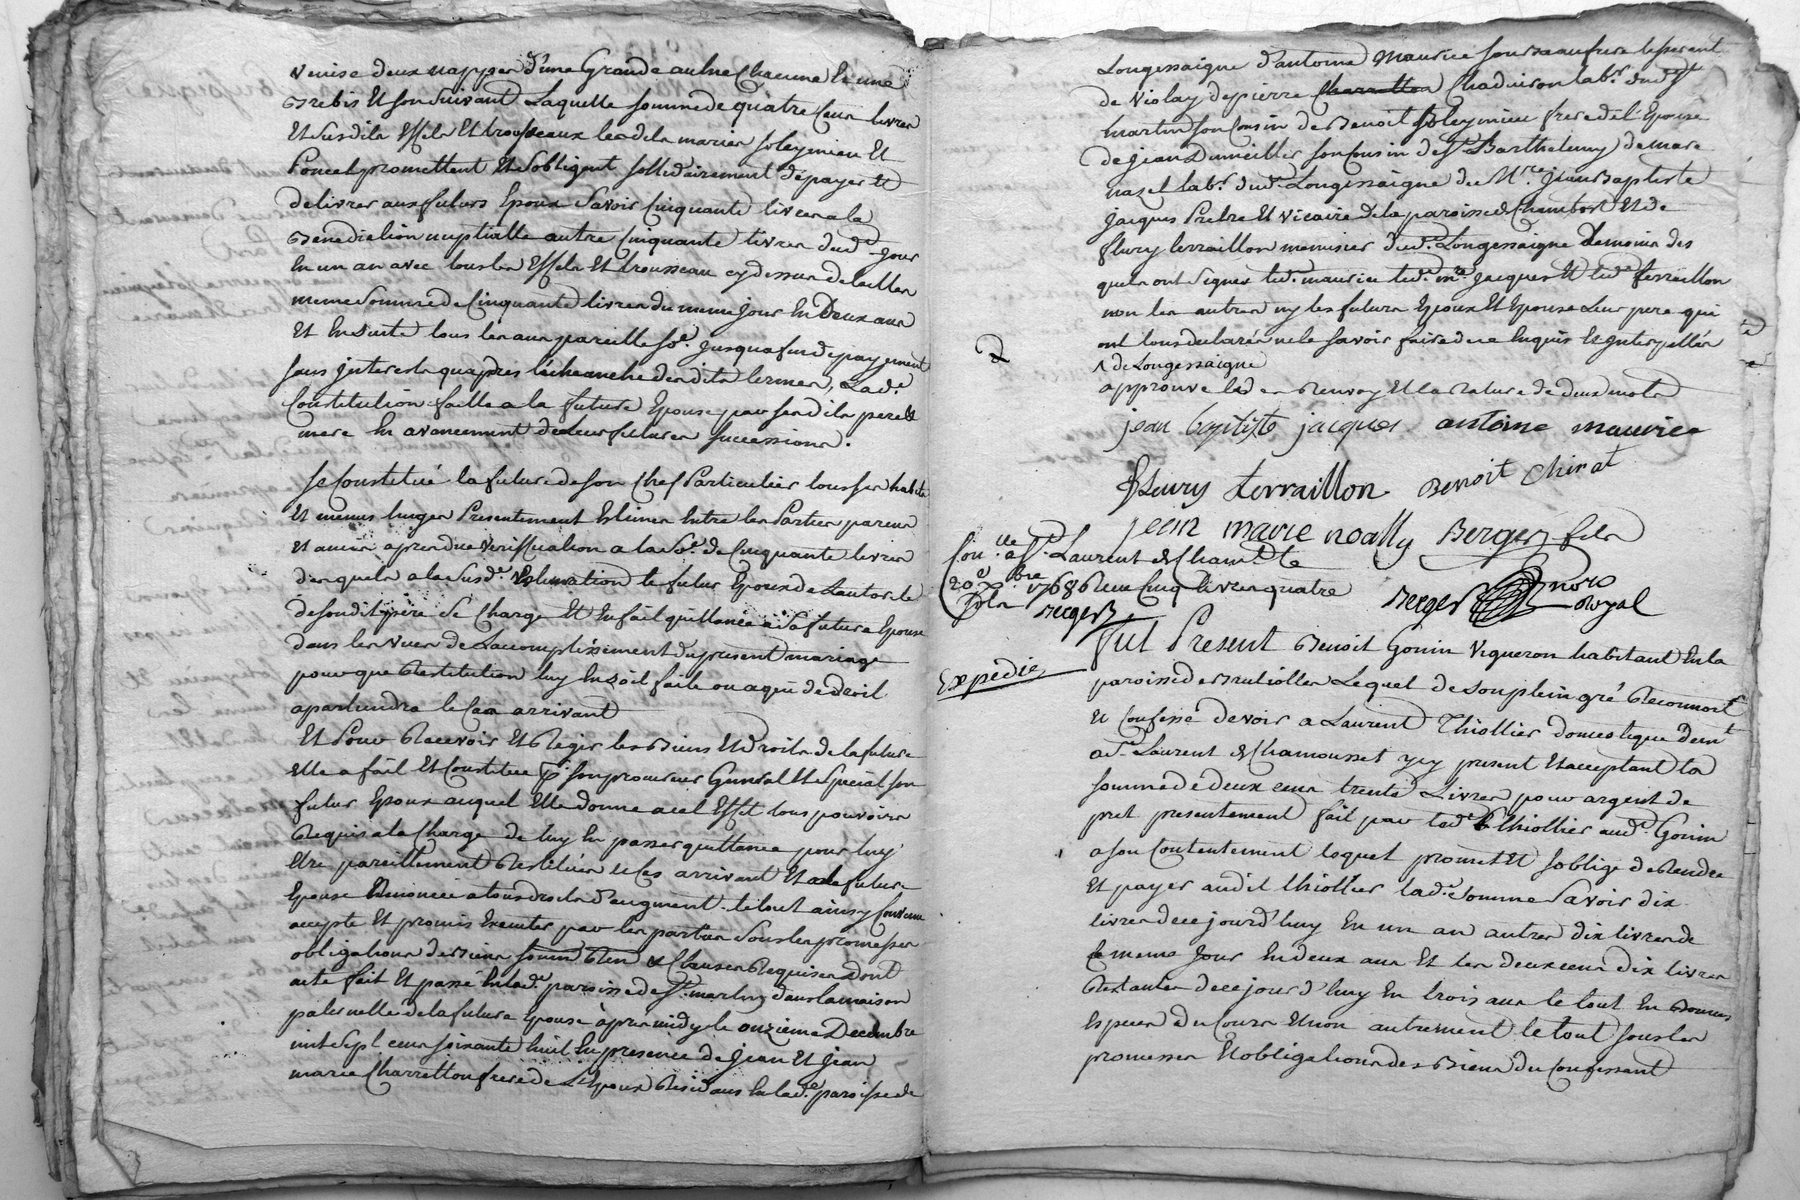 venise deux nappes d'une Grande aulne Chacune Et une
Brebis Et son suivant Laquelle somme de quatre Cent livres
Et susdits Effets Et trousseaux lesdits mariés soleymieu Et
Poncet promettent Et s'obligent sollidairement de payer Et
delivrer aux futurs Epoux Savoir Cinquante livres a la
Benediction nuptialle autre Cinquante livres dud. jour
En un an avec tous les Effets Et trousseau cy dessus detaillés
meme Somme de Cinquante livres du meme jour En Deux ans
Et En suite tous les ans pareille so.e jusqua fin de payement
sans interets qu'apres l'écheanche desdits termes, Lad.e
Constitution faitte a la future Epouse par sesdits pere Et
mere En avancement de leur futures successions.
Se Constitue la future de Son Chef Particulier tous ses habits
Et menus linges Presentement Estimés Entre les Parties parens
Et amis apres due verification a la So.e de Cinquante livres
desquels a la susd.e Estimation le futur Epoux de L'autorité
de sondit pere Se Charge Et En fait quittance a Sa future Epouse
dans les vues de L'accomplissement du present mariage
pour que Restitution luy En soit faite ou a qui de droit
apartiendra le Cas arrivant
Et Pour Recevoir Et Regir les Biens Et Droits de la future
Elle a fait Et Constitué p. son procureur General Et Special son
futur Epoux auquel Elle donne a cet Effet tous pouvoirs
Requis a la Charge de luy En passer quittance pour luy
Etre pareillement Restitués le Cas arrivant Et a lad. future
Epouse Renoncée a tous droits d'augment. le tout ainsy Convenu
accepté Et promis Executer par les parties Sous les promesses
obligations de Biens soumis Ren & Clauses Requises Dont
acte fait Et passé En lad.e paroisse de St. martin dans la maison
paternelle de la future Epouse apres midy le onzieme Decembre
mil Sept cens soixante huit En presence de Jean Et Jean
marie Charretton freres de L'Epoux Residans En lad.e paroisse de
Longessaigne d'antoine Maurice son beaufrere
de violay de pierre Charretton Chaduiron lab.r dud. St
martin son Cousin de Benoit Soleymieu frere de l'Epouse
de jean Dumeillier son Cousin de St. Barthelemy de mare
nazel lab.r dud. Longessaigne de M.re Jean Baptiste
jacques Pretre Et vicaire de la paroisse de Chambost Et de
fleury terraillon menusier dud. Longessaigne Temoins des
quels ont Signés led. maurice led. m.re Jacques Et led. terraillon
non les autres ny les futurs Epoux Et Epouse Leur pere qui
ont tous declarés ne le savoir faire de ce Enquis Et Interpellés
^ de Longessaigne
approuvé led. Renvoy Et la Rature de deux mots
jean baptiste jacques antoine maurice
fleury terraillon Benoit Chirat
jean marie noally Berger fils
Con.lle a St. Laurent de Cham.t le
20.e Xbre 1768 Reçu Cinq livres quatre
Sols Berger
Berger no.re Royal
Expedié
Fut Present Benoit Gonin vigneron habitant En la
paroisse de Brulioles Lequel de Son plein gré Reconnoit
Et Confesse devoir a Laurent Thiollier domestique dem.t
a St. Laurent de Chamousset icy present Et acceptant la
somme de deux cens trente Livres pour argent de
pret presentement fait par led. Thiollier aud. Gonin
a son Contentement laquel promet Et s'oblige de Rendre
Et payer audit thiollier lad.e Somme Savoir dix
livres de ce jourd'huy En un an autres dix livres de
ce meme Jour En deux ans Et les deux cens dix livres
Restantes de ce jourd'huy En trois ans le tout En Bonnes
Especes du Cours Et non autrement le tout sous les
promesses Et obligations des Biens du Confessant